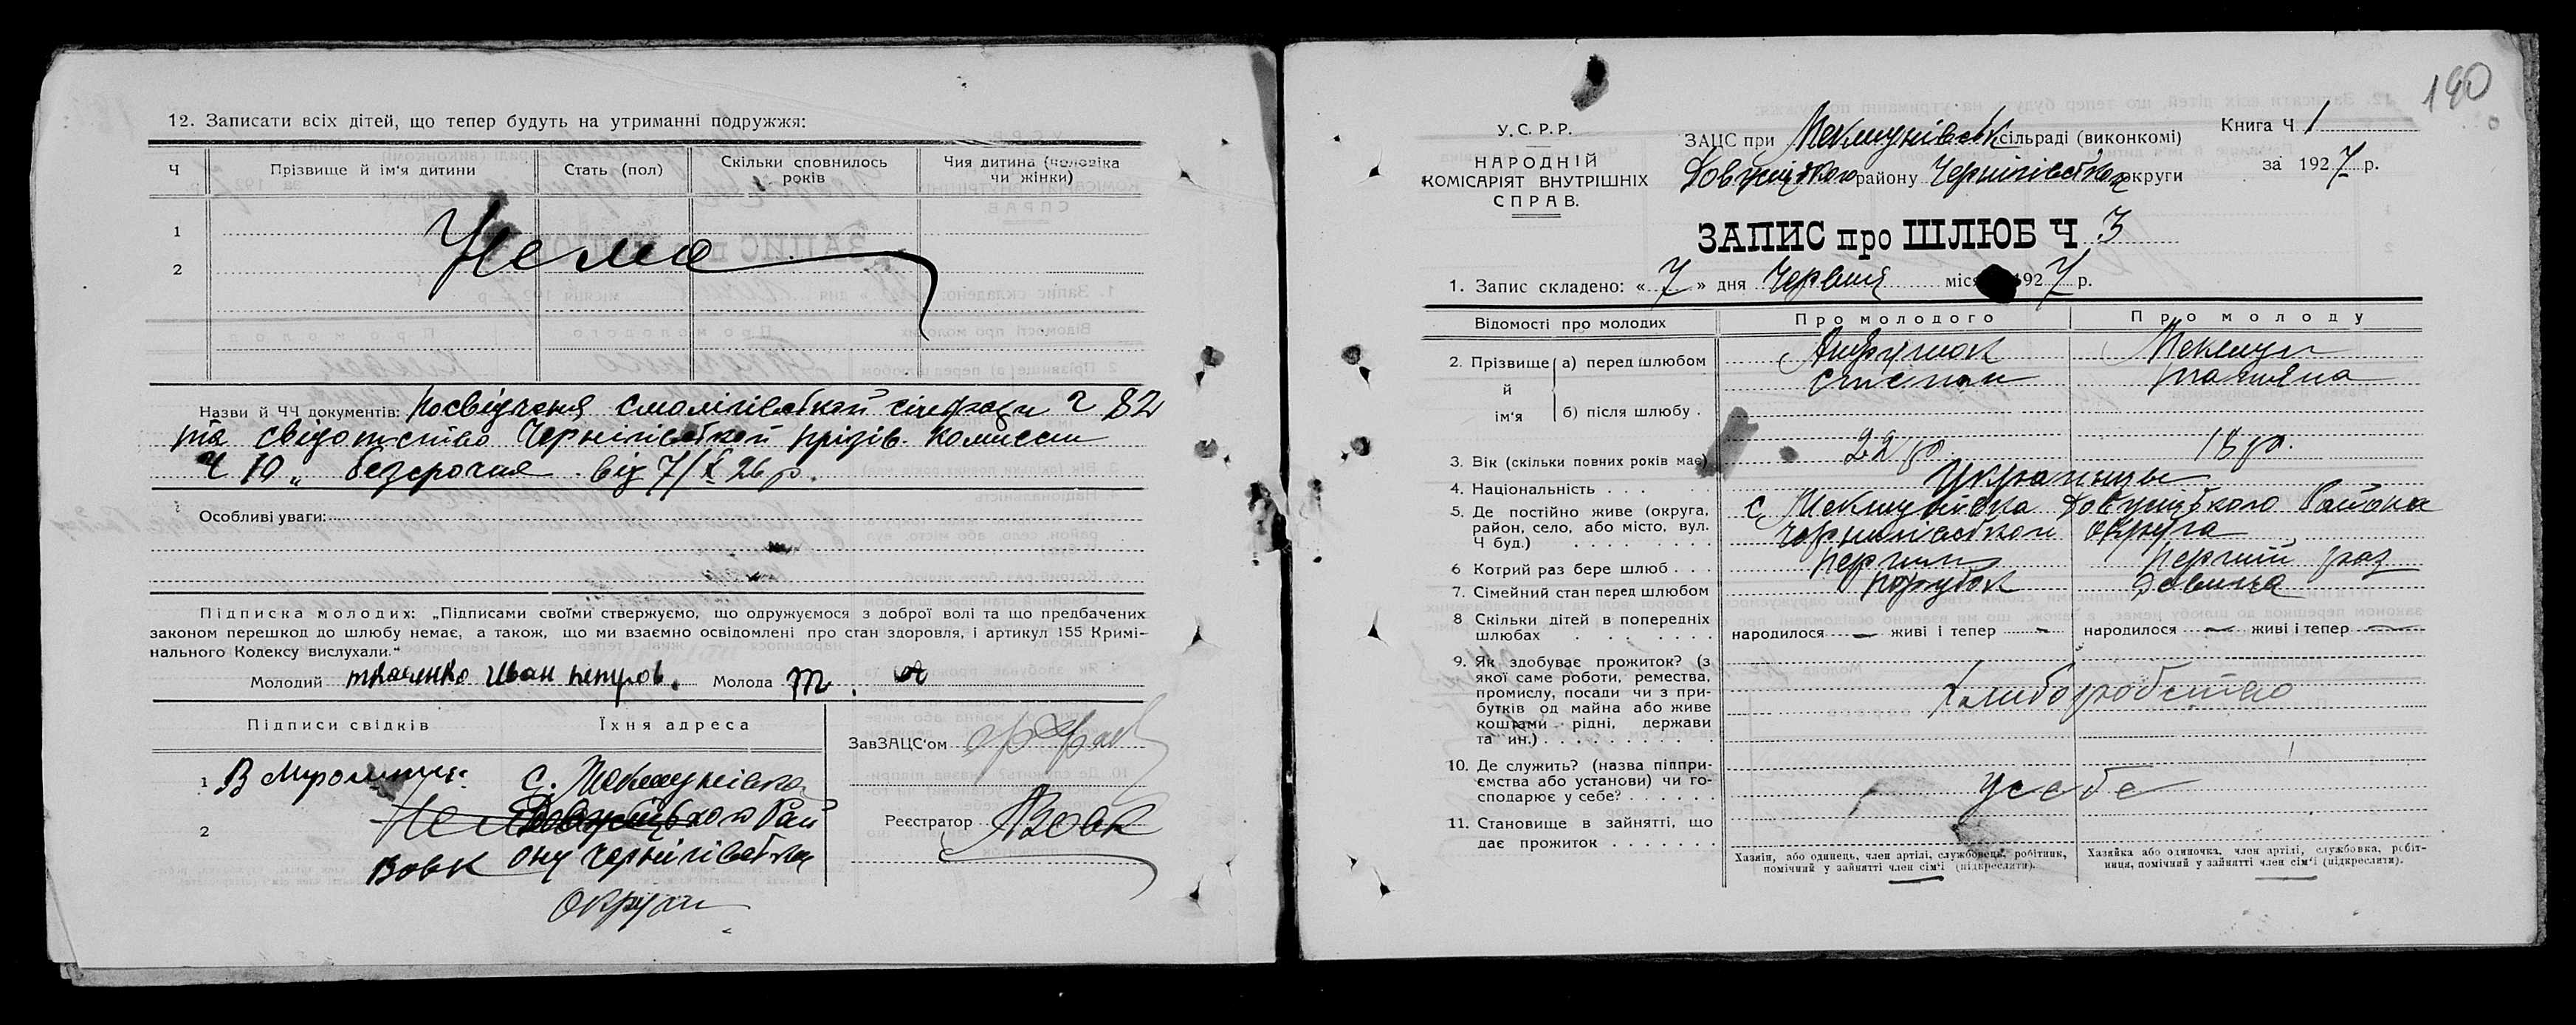 12. Записати всіх дітей, що тепер будуть на утриманні подружжя:
Ч
Прізвище й ім'я дитини
Стать (пол)
Скільки сповнилось років
Чия дитина (чоловіка чи жінки)
1
2
Нема
Назви й ЧЧ документів: Посвідченя Смолігівської сільради г 82
та свідотство Чернігівської призів. Комисси
Ч 10 „ безсрочня від 7/X 26 р.
Особливі уваги:
Підписка молодих: „Підписами своїми стверджуємо, що одружуємося з доброї волі та що предбачених
законом перешкод до шлюбу немає, а також, що ми взаємно освідомлені про стан здоровля, і артикул 155 Кримі-
нального Кодексу вислухали."
Молодий Ткаченко Иван петров. Молода Т.
Підписи свідків
Їхня адреса
1 В Миролит
с.
2
Вовк
ону Чернігівська
Округи
ЗавЗАЦС'ом
Реєстратор Вовк
190
У.С.Р.Р.
НАРОДНІЙ
КОМІСАРІЯТ ВНУТРІШНІХ
СПРАВ.
ЗАЦС при сільраді (виконкомі)
району Чернігівської округи
Книга Ч 1
за 1927 р.
ЗАПИС про ШЛЮБ Ч 3
1. Запис складено: « 7 » дня Червня міся 1927 р.
Відомості про молодих
Про молодого
Про молоду
2. Прізвище й ім'я
а) перед шлюбом
Степан
Татьяна
б) після шлюбу .
3. Вік (скільки повних років має)
22 р.
18 р.
4. Національність . . .
Украинцы
5. Де постійно живе (округа,
район, село, або місто, вул.
Ч буд.)
с. Района
Чернигівської округа
6 Котрий раз бере шлюб . . .
Перший
Перший раз
7. Сімейний стан перед шлюбом
Парубок
Дівиця
8 Скільки дітей в попередніх
шлюбах
народилося — живі і тепер —
народилося — живі і тепер —
9. Як здобуває прожиток? (з
якої саме роботи, ремества,
промислу, посади чи з при-
бутків од майна або живе
коштами рідні, держави
та ин.)
Хлиборобство
10. Де служить? (назва підпри-
ємства або установи) чи го-
сподарює у себе?
у себе
11. Становище в зайнятті, що
дає прожиток
Хазяїн, або одинець, член артілі, службовець, робітник,
помічний у зайнятті член сім'ї (підкреслити).
Хазяйка або одиночка, член артілі, службовка, робіт-
ниця, помічний у зайнятті член сім'ї (підкреслити).